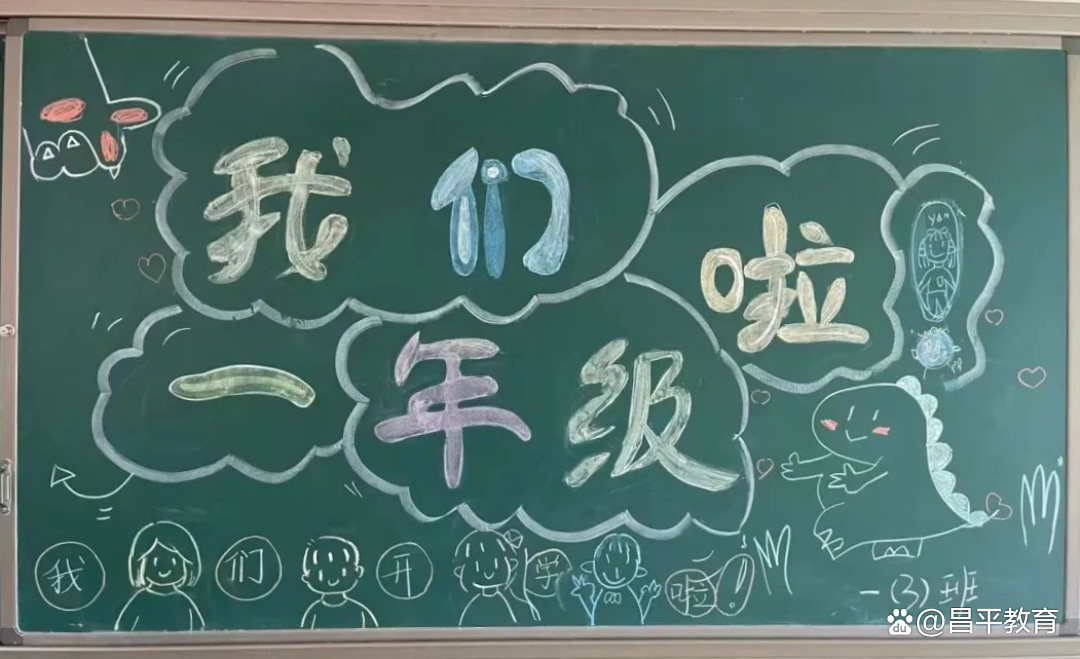 我们
啦!
一年级
我们开学啦!
一(3)班
du @昌平教育